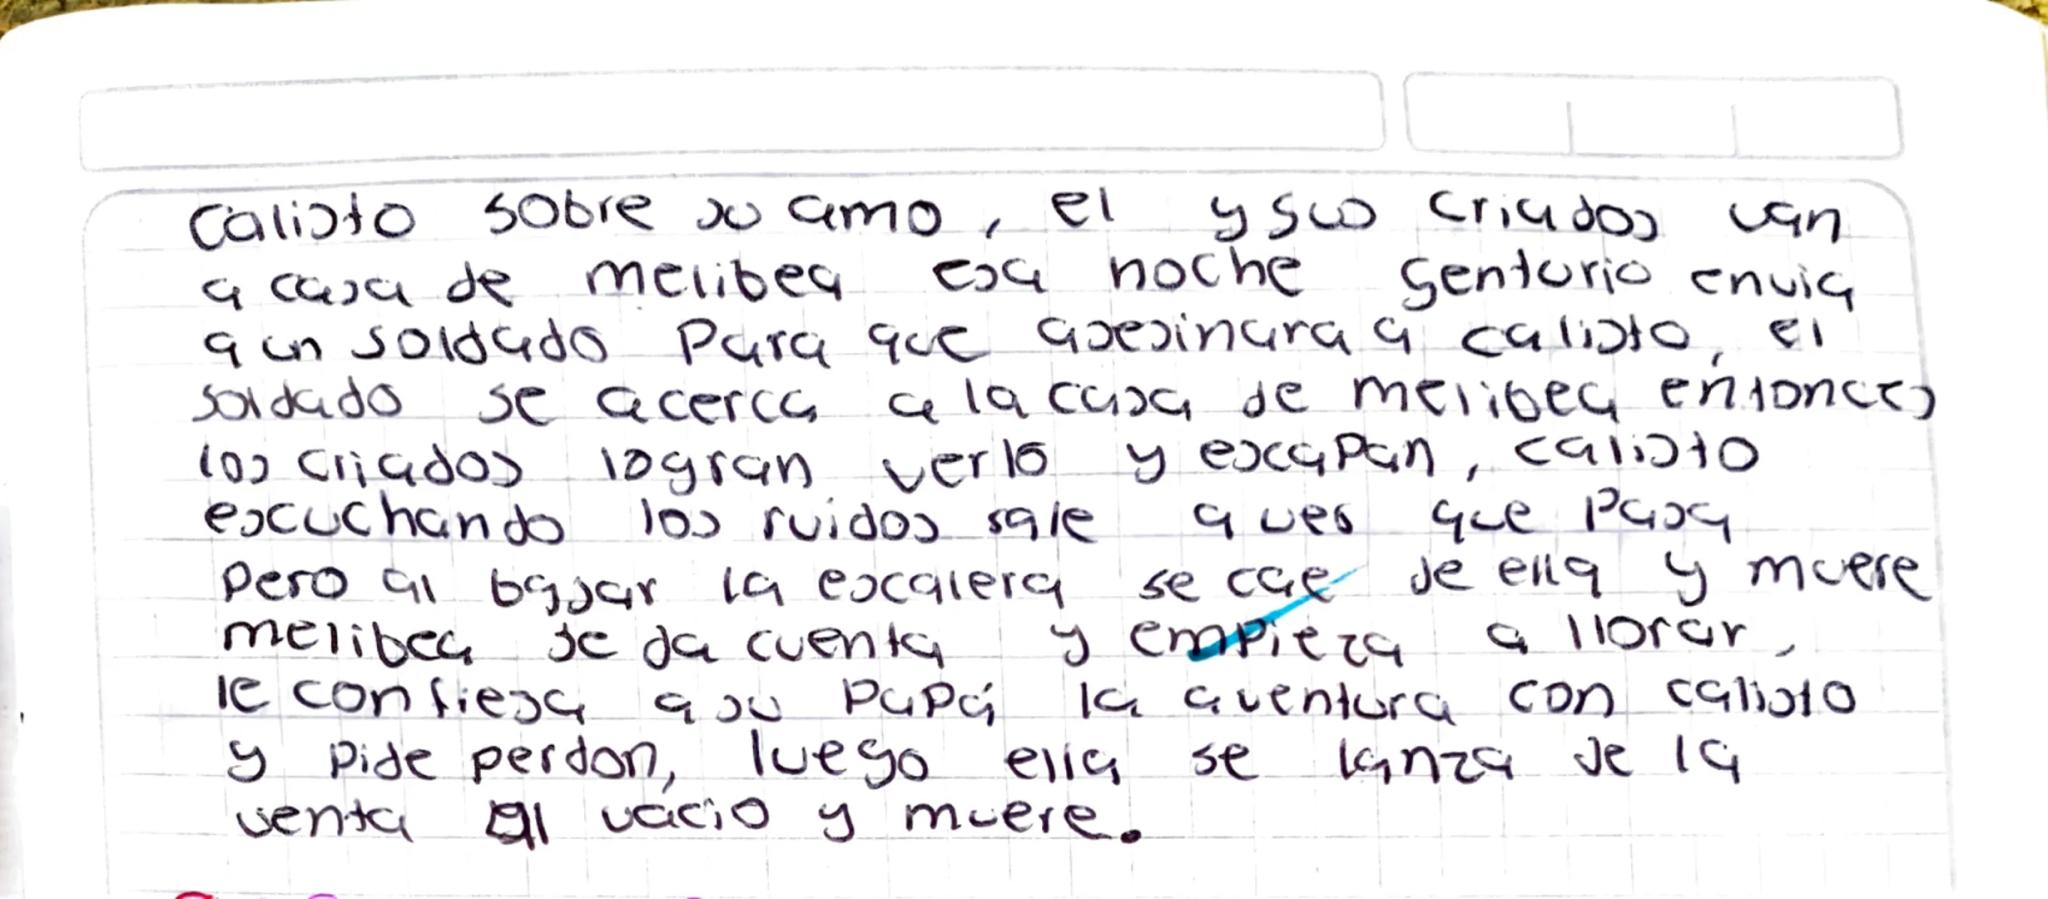 calisto sobre su amo, el y sus criados van
a casa de melibea esa noche senturio envia
a un soldado para que asesinara a calisto, el
soldado se acerca a la casa de melibea entonces
los criados logran verlo y escapan, calisto
escuchando los ruidos sale a ver que pasa
pero al bajar la escalera se cae de ella y muere
melibea se da cuenta y empieza a llorar,
le confiesa a su papá la aventura con calisto
y pide perdon, luego ella se lanza de la
venta al vacio y muere.